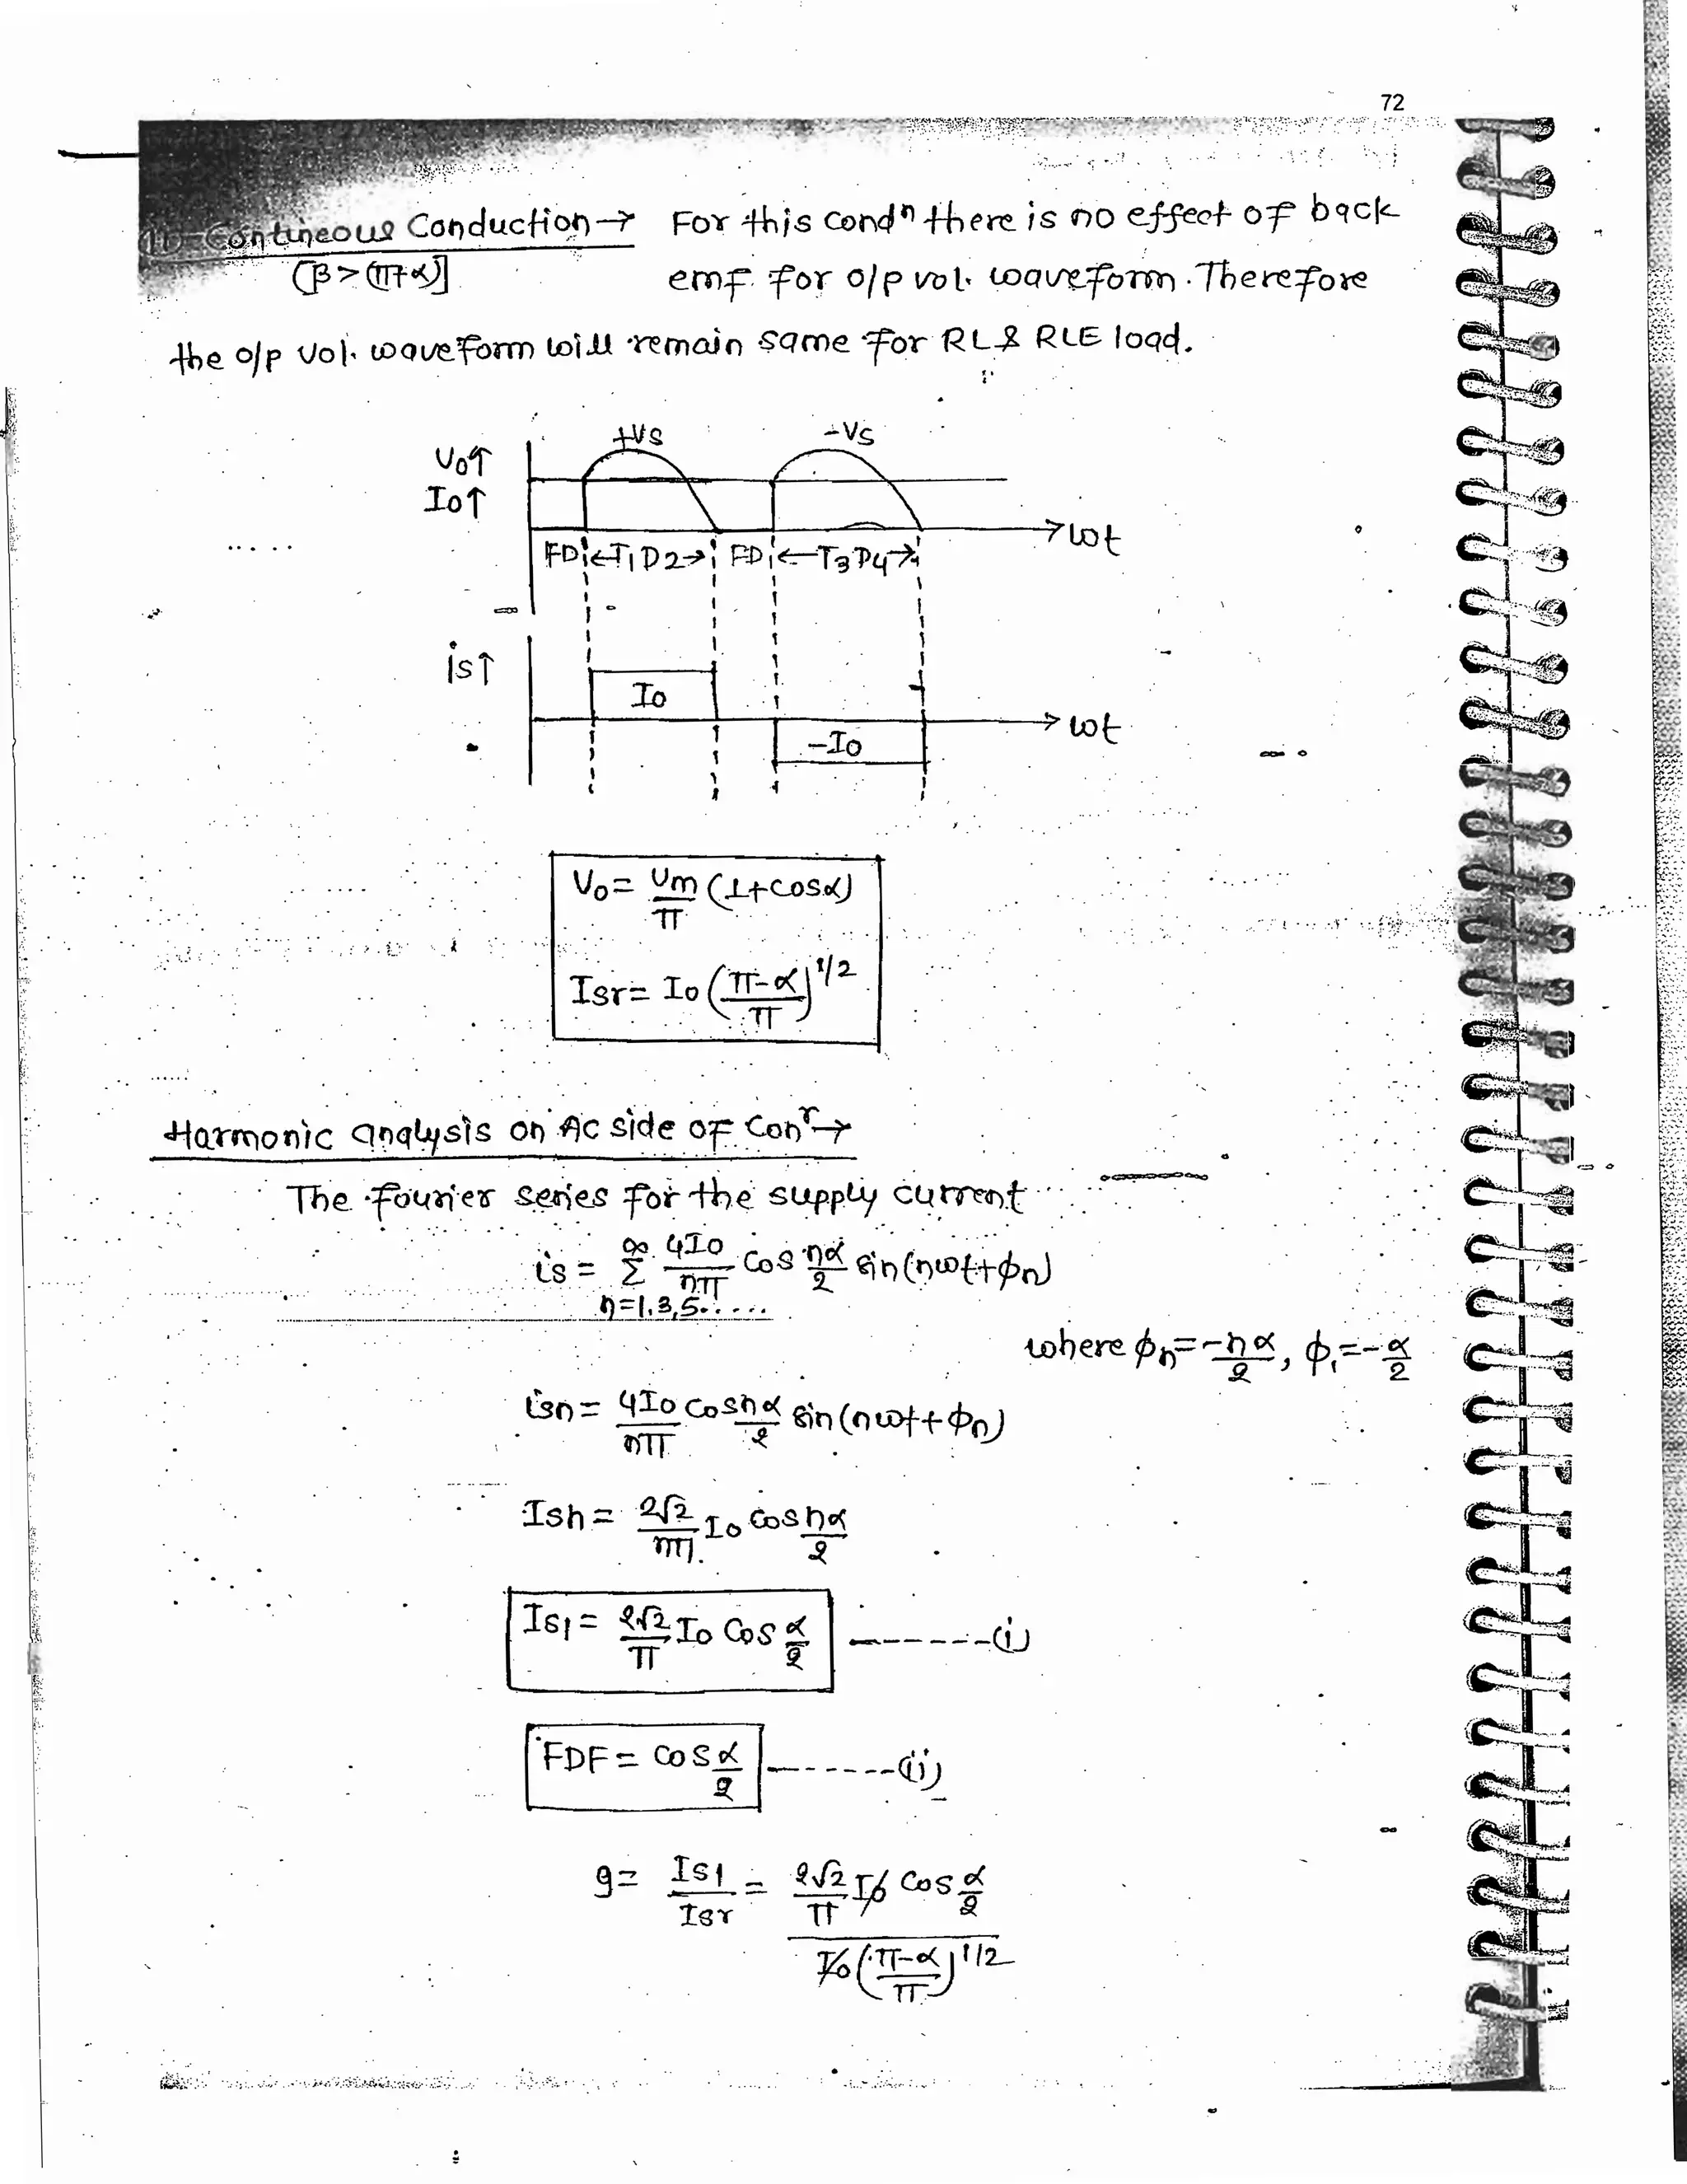 72
Contineous Conduction → For this condⁿ there is no effect of back
[β > (π+α)] emf for o/p vol. waveform. Therefore
the o/p vol. waveform will remain same for RL & RLE load.
+Vs -Vs
Vo↑
Io↑
→ ωt
FD ←T1D2→ FD ←T3D4→
is↑
Io
→ ωt
-Io
Vo = Vm/π (1+cosα)
Isr = Io (π-α/π)^1/2
Harmonic analysis on Ac side of Conʳ →
The fourier series for the supply current
is = ∞Σn=1,3,5..... 4Io/nπ cos nα/2 sin(nωt+φn)
where φn = -nα/2, φ1 = -α/2
isn = 4Io/nπ cos nα/2 sin(nωt+φn)
Isn = 2√2/nπ Io cos nα/2
Is1 = 2√2/π Io Cos α/2 ------(i)
FDF = cos α/2 ------(ii)
g = Is1/Isr = 2√2/π Io cos α/2 / Io (π-α/π)^1/2